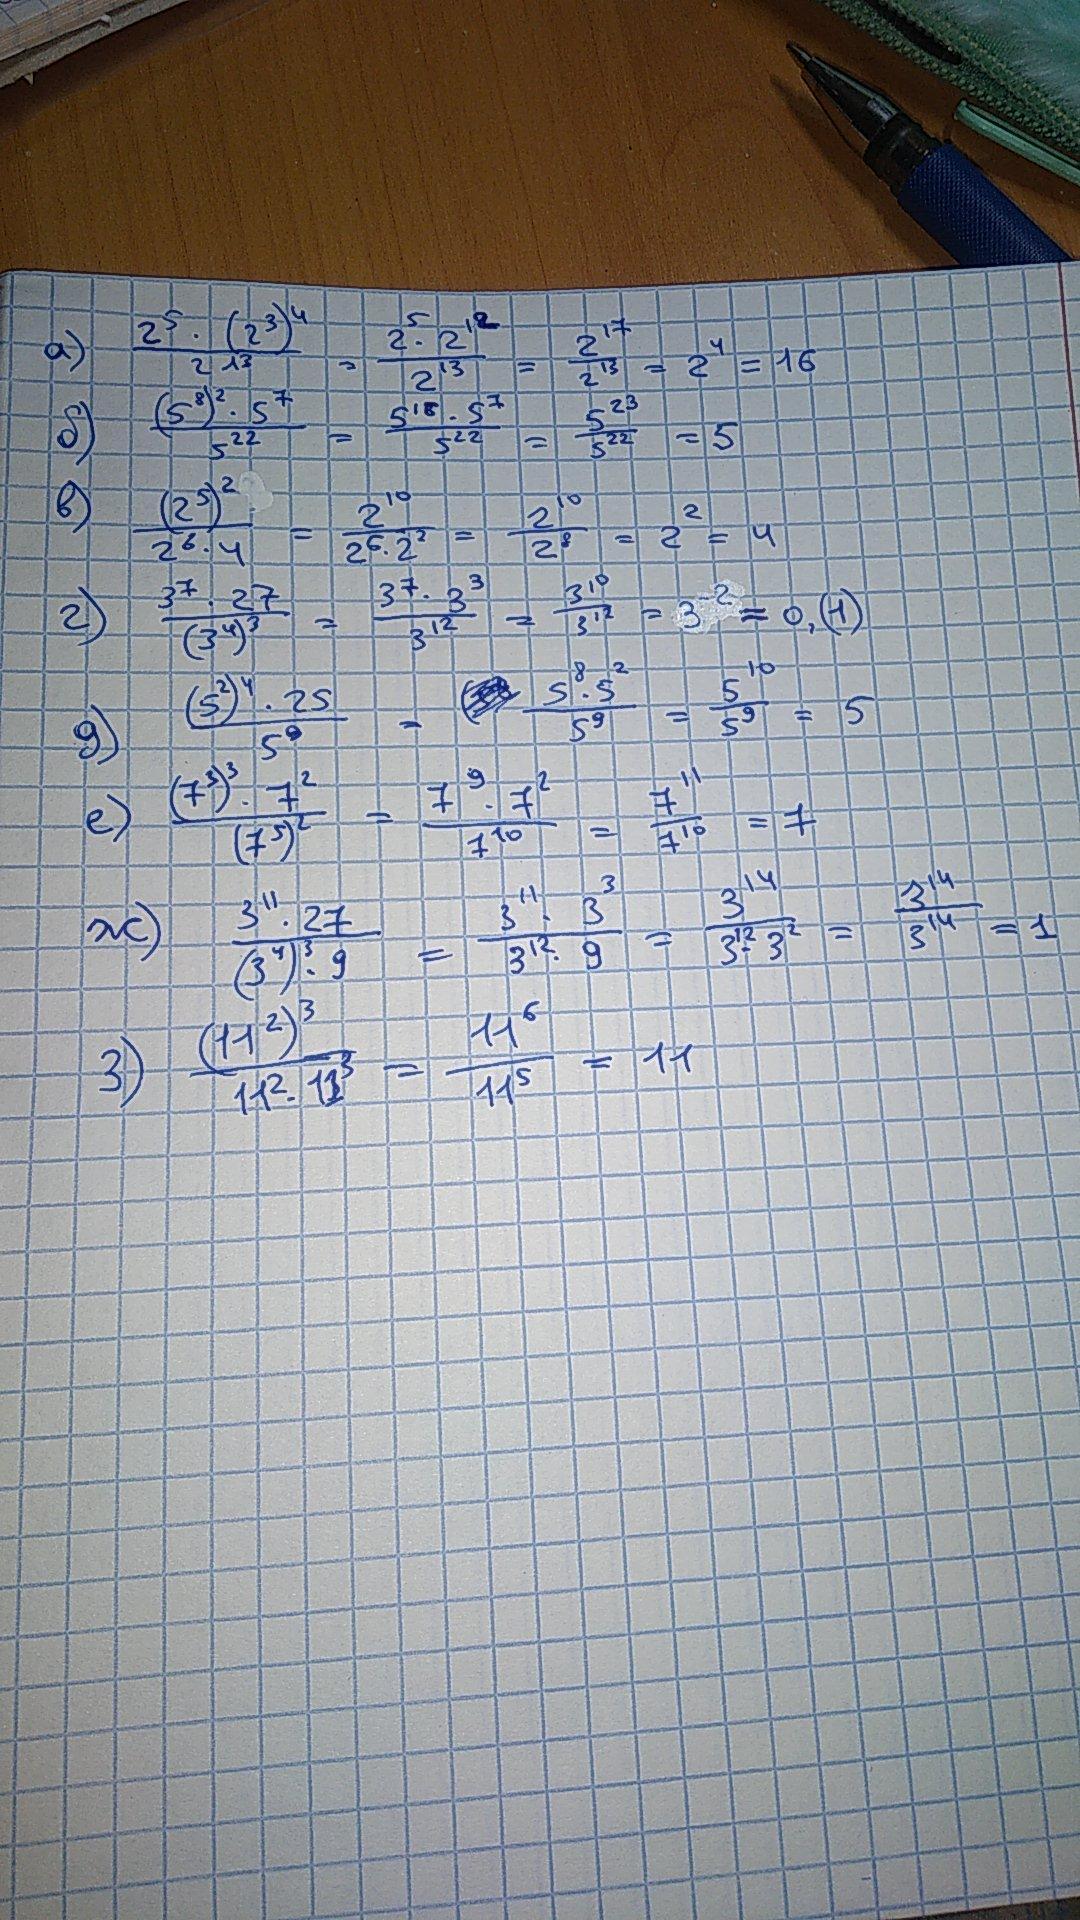 а) (2⁵ · (2³)⁴)/2¹³ = (2⁵ · 2¹²)/2¹³ = 2¹⁷/2¹³ = 2⁴ = 16
б) ((5⁸)² · 5⁷)/5²² = (5¹⁶ · 5⁷)/5²² = 5²³/5²² = 5
в) (2⁵)²/(2⁶ · 4) = 2¹⁰/(2⁶ · 2²) = 2¹⁰/2⁸ = 2² = 4
г) (3⁷ · 27)/(3⁴)³ = (3⁷ · 3³)/3¹² = 3¹⁰/3¹² = 3⁻² = 0,(1)
д) ((5²)⁴ · 25)/5⁹ = (5⁸ · 5²)/5⁹ = 5¹⁰/5⁹ = 5
е) ((7³)³ · 7²)/(7⁵)² = (7⁹ · 7²)/7¹⁰ = 7¹¹/7¹⁰ = 7
ж) (3¹¹ · 27)/((3⁴)³ · 9) = (3¹¹ · 3³)/(3¹² · 9) = 3¹⁴/(3¹² · 3²) = 3¹⁴/3¹⁴ = 1
з) (11²)³/(11² · 11³) = 11⁶/11⁵ = 11